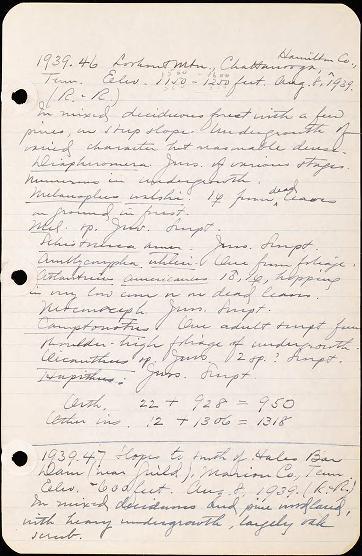 Hamilton Co.,
1939.46 Lookout Mtn., Chattanooga,
Tenn. Elev. 1150 - 1250 feet. Aug. 8, 1939.
(R.-R.)
In mixed deciduous forest with a few
pines, on steep slope. Undergrowth of
varied character but reasonable dense.
Diapheromera Juvs. of various stages.
Numerous in undergrowth.
Melanoplus walshii. 1♀ from dead leaves
on ground in forest.
Mel. sp. Juv. Swept.
Schistocerca amer. Juvs. Swept.
Amblycorypha uhleri. One from foliage.
Atlanticus americanus 1♂, 1♀, hopping
in low cover or on dead leaves.
Conoceph. Juvs. Swept.
Camptonotus One adult swept from
shoulder-high foliage of undergrowth.
Oecanthus sp. Juvs. 2 sp.? Swept.
Hapithus: Juvs. Swept.
Orth. 22 + 928 = 950
Other ins. 12 + 1306 = 1318
1939.47 Slopes to south of Hales Bar
Dam (near Guild), Marion Co., Tenn.
Elev. 600 feet. Aug. 8, 1939. (R.-R.)
In mixed deciduous and pine woodland,
with heavy undergrowth, largely oak
scrub.